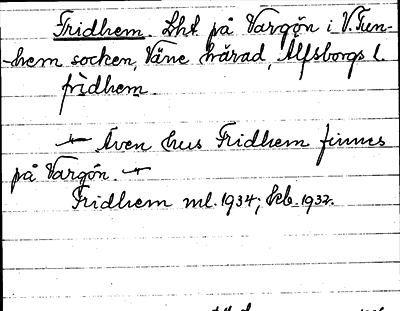 Fridhem. Lht på Vargön i V. Tun-
-hem socken, Väne härad, Älfsborgs l.
frìdhem.
Även hus Fridhem finnes
på Vargön.
Fridhem ml. 1934; Ekb. 1932.